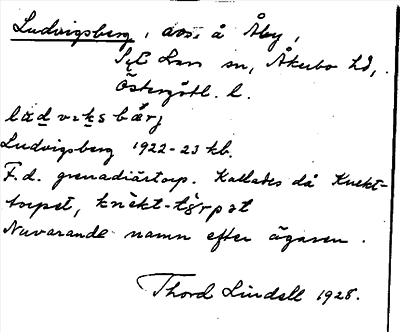 Ludvigsberg, avs. å Åby,
S:t Lars sn, Åkerbo hd,
Östergötl. l.
lùdvɩksbærj
Ludvigsberg 1922-23 kb.
F.d. grenadiärtorp. Kallades då Knekt-
torpet, knèkt-tɷrpət
Nuvarande namn efter ägaren.
Thord Lindell 1928.